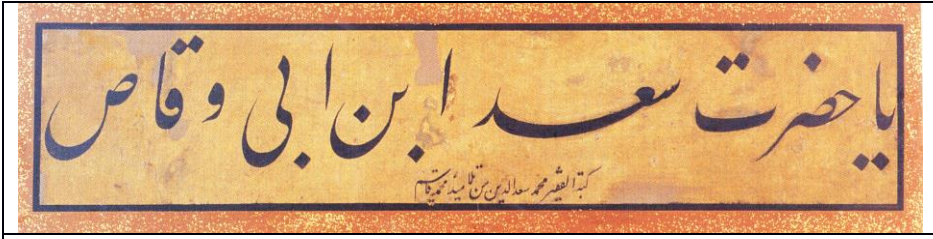 يا حضرت سعد ابن ابى وقاص
كتبه الفقير محمد سعد الدين من تلاميذ محمد قاسم